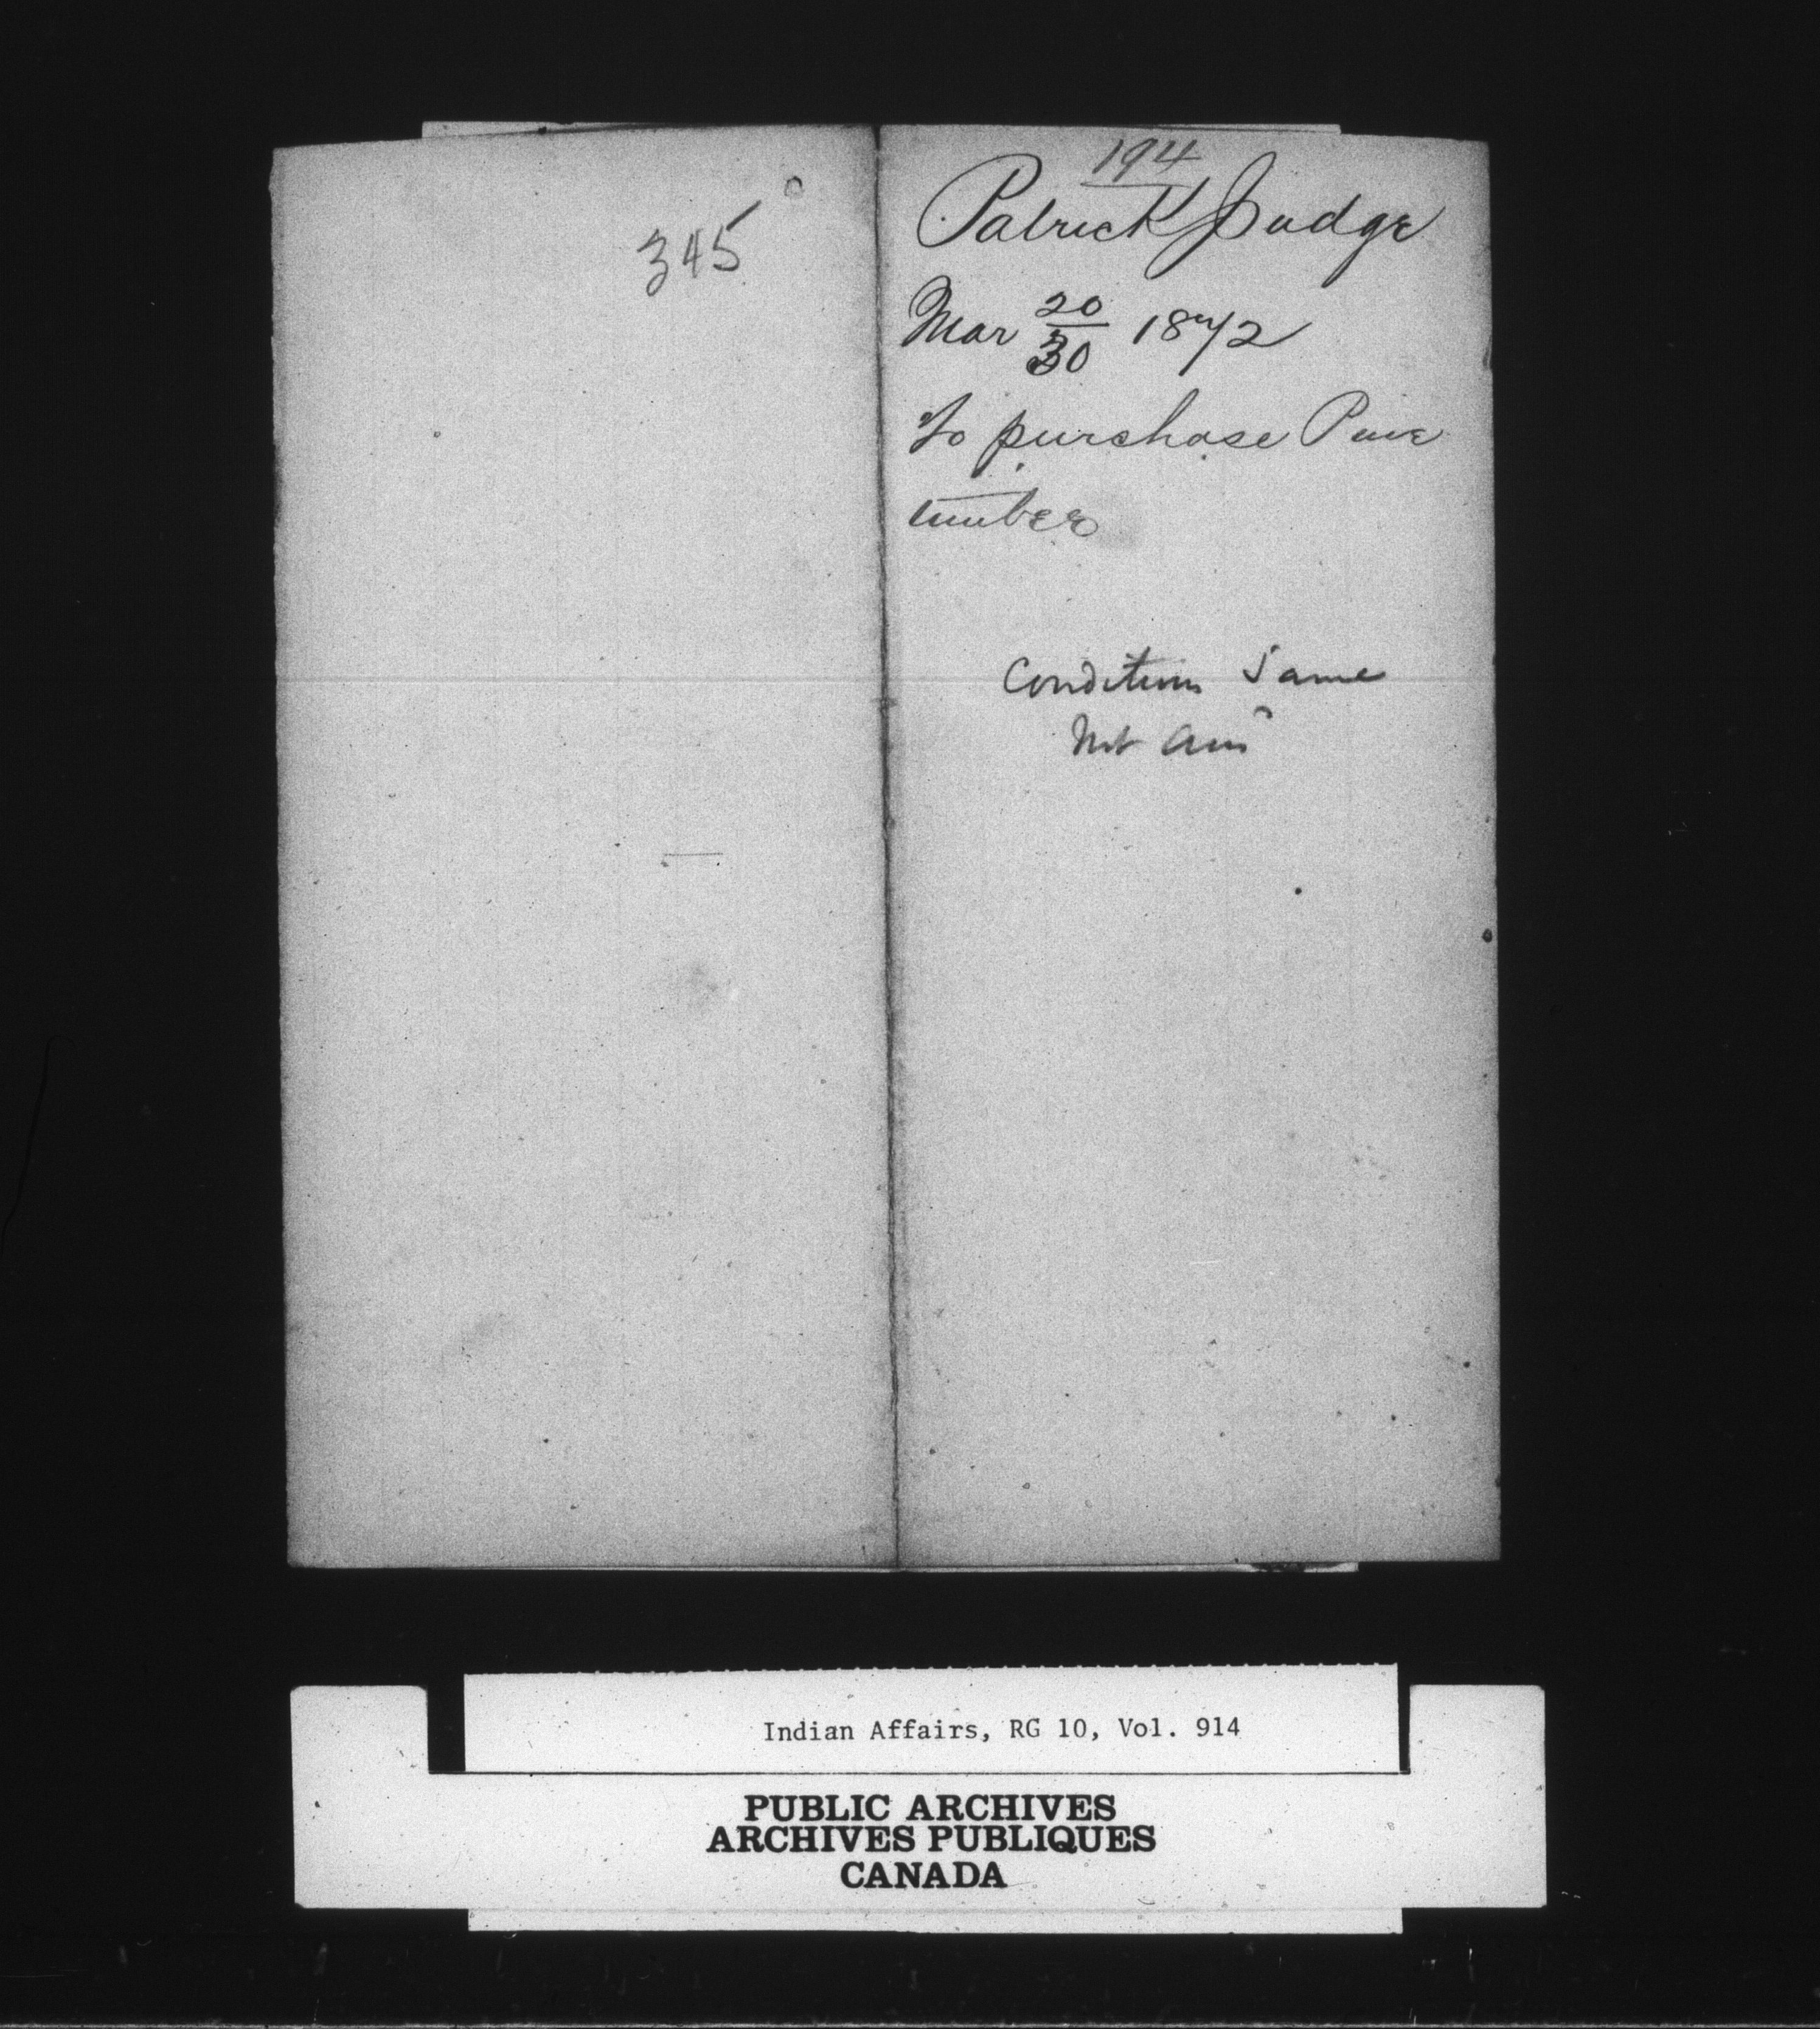 345
194
Patrick Judge
Mar 20/30 1872
To purchase Pine
timber
Conditions Same
Not
Indian Affairs, RG 10, Vol. 914
PUBLIC ARCHIVES
ARCHIVES PUBLIQUES
CANADA